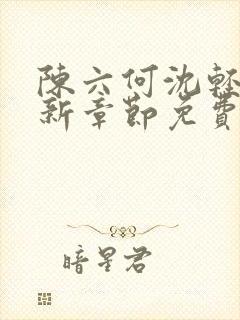 陳六何沈輕
新章節免費
暗星君